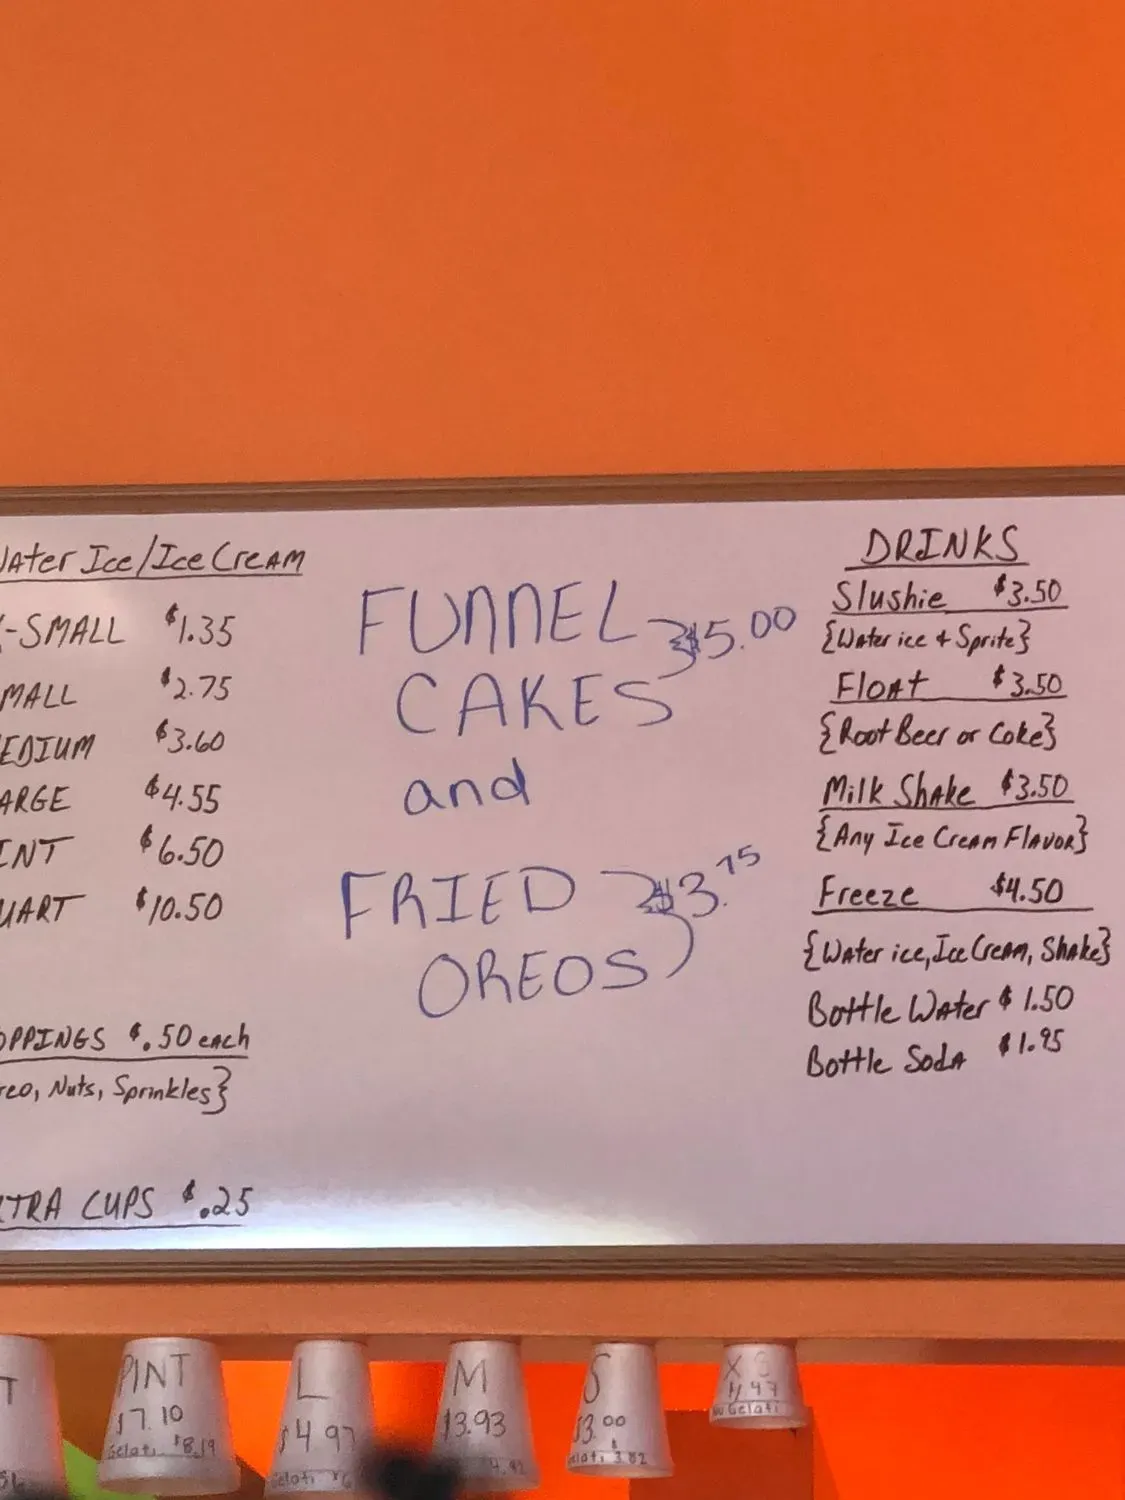 Water Ice/Ice Cream
X-SMALL $1.35
SMALL $2.75
MEDIUM $3.60
LARGE $4.55
PINT $6.50
QUART $10.50
TOPPINGS $.50 each
{Oreo, Nuts, Sprinkles}
EXTRA CUPS $.25
FUNNEL
CAKES
$5.00
and
FRIED
OREOS
$3.75
DRINKS
Slushie $3.50
{Water ice + Sprite}
Float $3.50
{Root Beer or Coke}
Milk Shake $3.50
{Any Ice Cream Flavor}
Freeze $4.50
{Water ice, Ice Cream, Shake}
Bottle Water $1.50
Bottle Soda $1.95
T
PINT
$7.10
Gelati $8.19
L
$4.97
Gelati
M
$3.93
4.92
S
$3.00
Gelati 3.82
XS
No Gelati